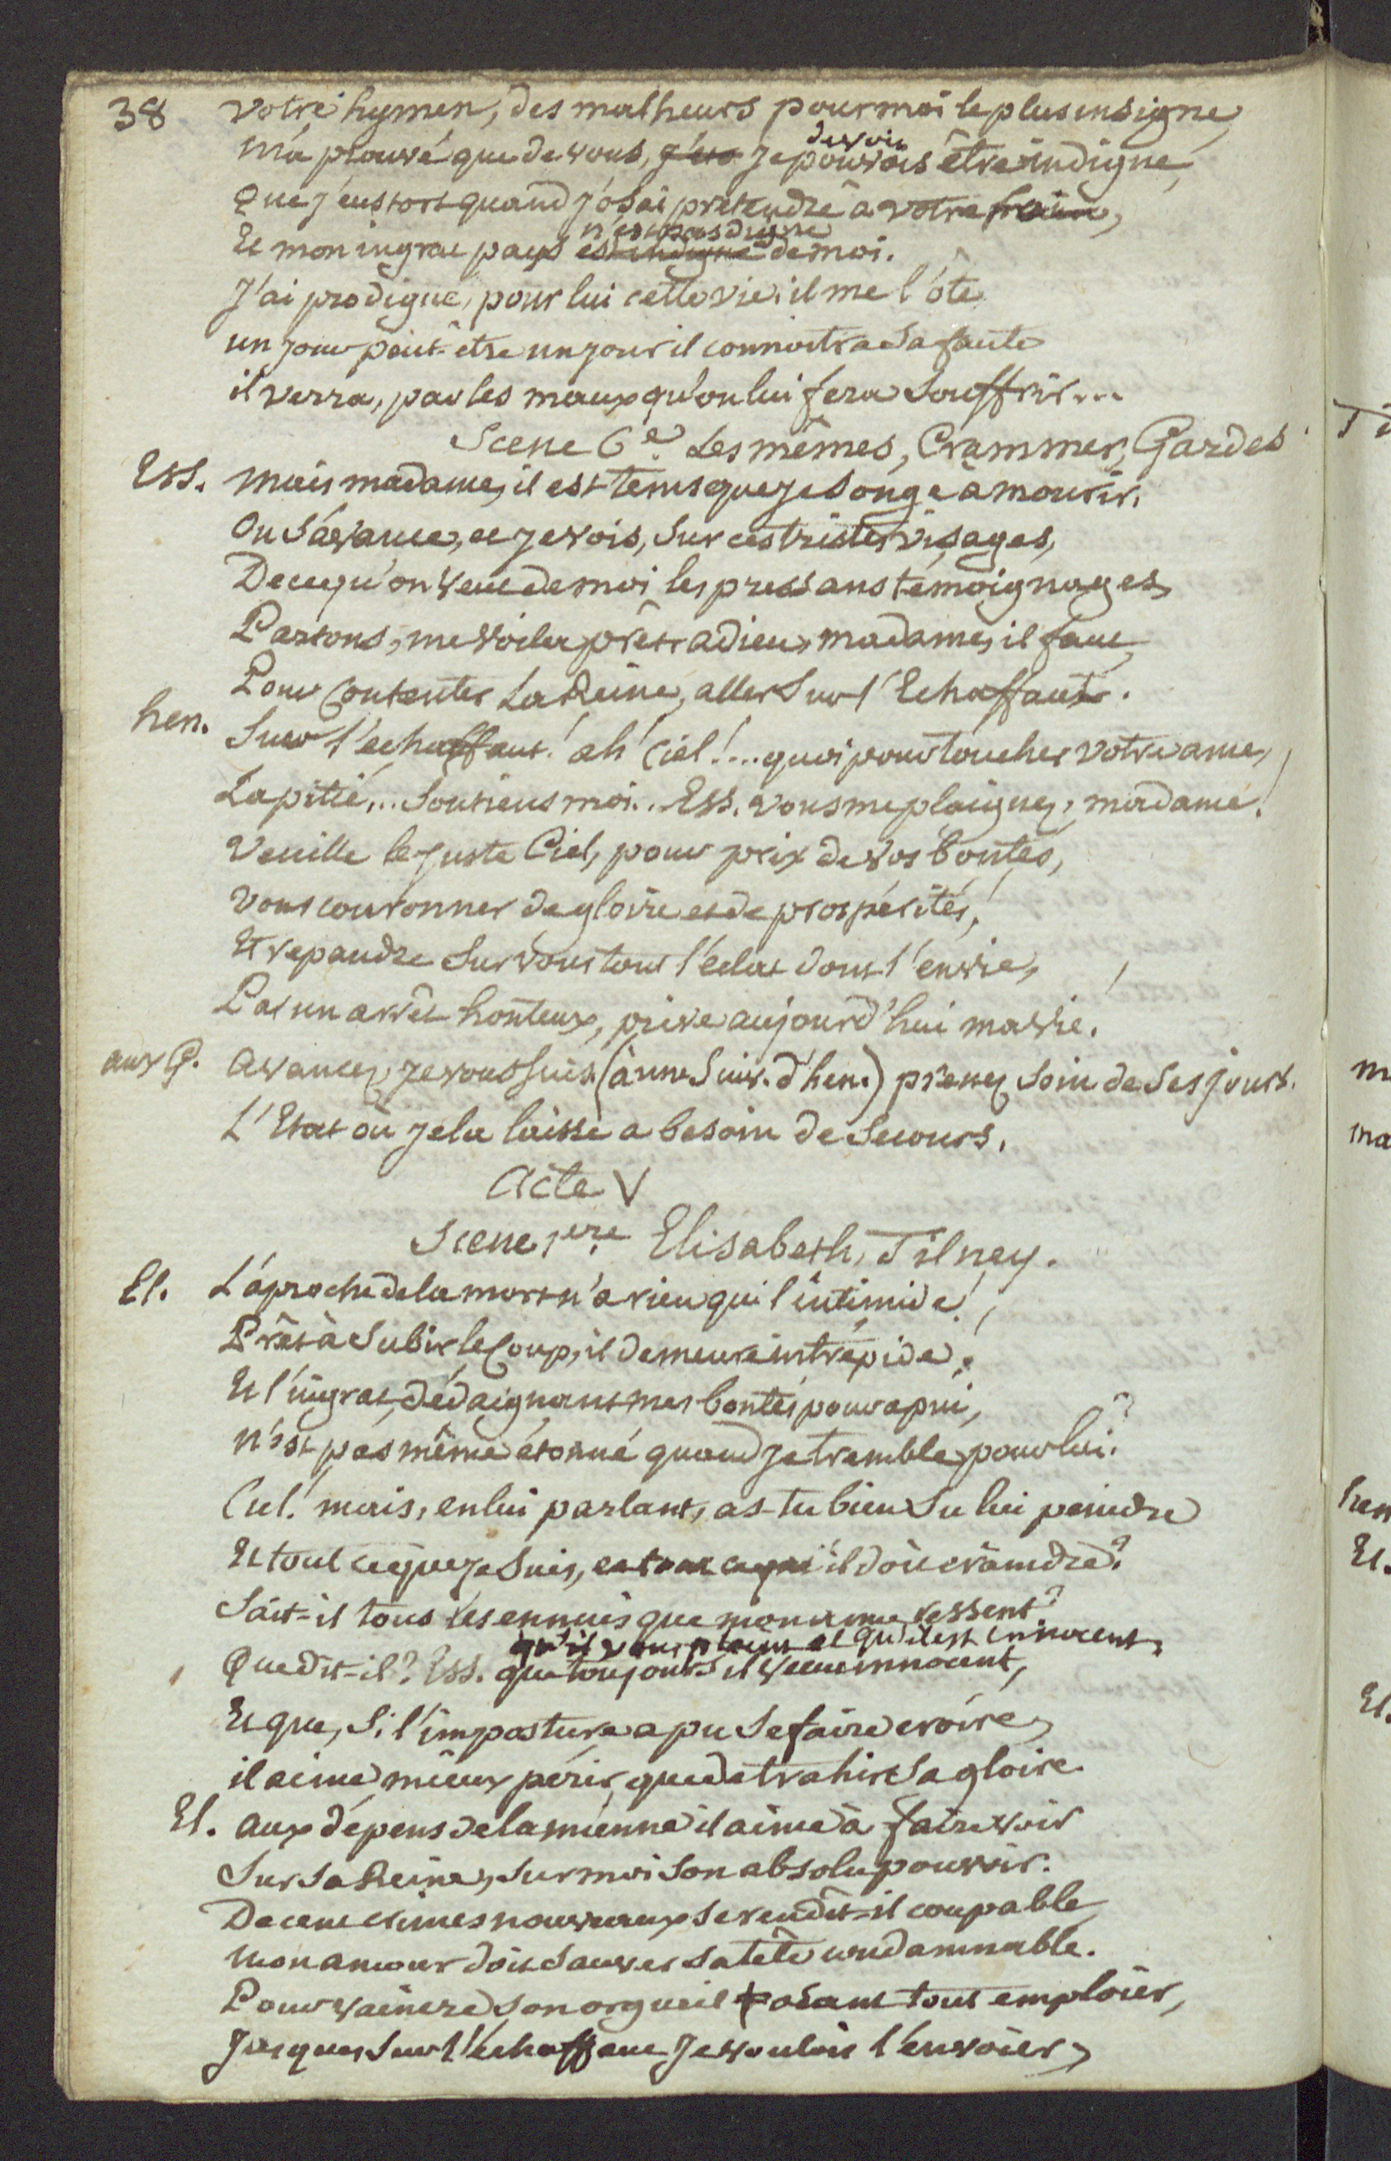 38 votre hymen, des malheurs pour moi le plus insigne,
devois
m'a prouvé que de vous, je pouvois être indigne,
Que j'eus tort quand j'osai prétendre à votre
n'est pas digne
Et mon ingrat pays est indigne de moi.
J'ai prodigué, pour lui cette vie; il me l'ôte
un jour peut-être un jour il connoitra sa faute
il verra, par les maux qu'on lui fera souffrir...
Scene 6e. Les mêmes, Crammer, Gardes
Ess. mais madame, il est tems que je songe à mourir.
On s'avance, et je vois, sur ces tristes visages,
De ce qu'on veut de moi les pressans témoignages
Partons, me voila prêt. adieu, madame, il faut,
Pour contenter la Reine, aller sur l'Echaffaut.
hen. Sur l'échaffaut! ah Ciel!... quoi pour toucher votre ame,
La pitié... Soutiens moi.. Ess. vous me plaignez, madame!
Veuille le juste Ciel, pour prix de vos bontés,
vous couronner de gloire et de prospérités!
Et repandre sur vous tout l'éclat dont l'envie,
Par un arrêt honteux, prive aujourd'hui ma vie!
aux G. avancez, je vous suis. (à une suiv. d'hen.) prenez soin de ses jours.
L'Etat où je la laisse a besoin de secours.
Acte V
Scene 1ere. Elisabeth, Tilney.
El. L'aproche de la mort n'a rien qui l'intimide!
Prêt à subir le coup, il demeure intrépide!
Et l'ingrat, dédaignant mes bontés pour apui,
n'est pas même étonné quand je tremble pour lui?
Ciel! mais, en lui parlant, as-tu bien su lui peindre
Et tout ce que je suis, et tout ce qu'il doit craindre?
Sait-il tous les ennuis que mon ame ressent?
qu'il vous plaint et qu'il est innocent,
Que dit-il? Ess. que toujours il vecut innocent,
Et que, si l'imposture a pu se faire croire,
il aime mieux périr, que de trahir sa gloire.
El. aux dépens de la mienne il aime à faire voir
Sur sa Reine, sur moi son absolu pouvoir.
De cent crimes nouveaux se rendît-il coupable,
mon amour doit sauver sa tête condamnable.
Pour vaincre son orgueil osant tout emploier,
Jusques sur l'échaffaut je voulois l'envoier,